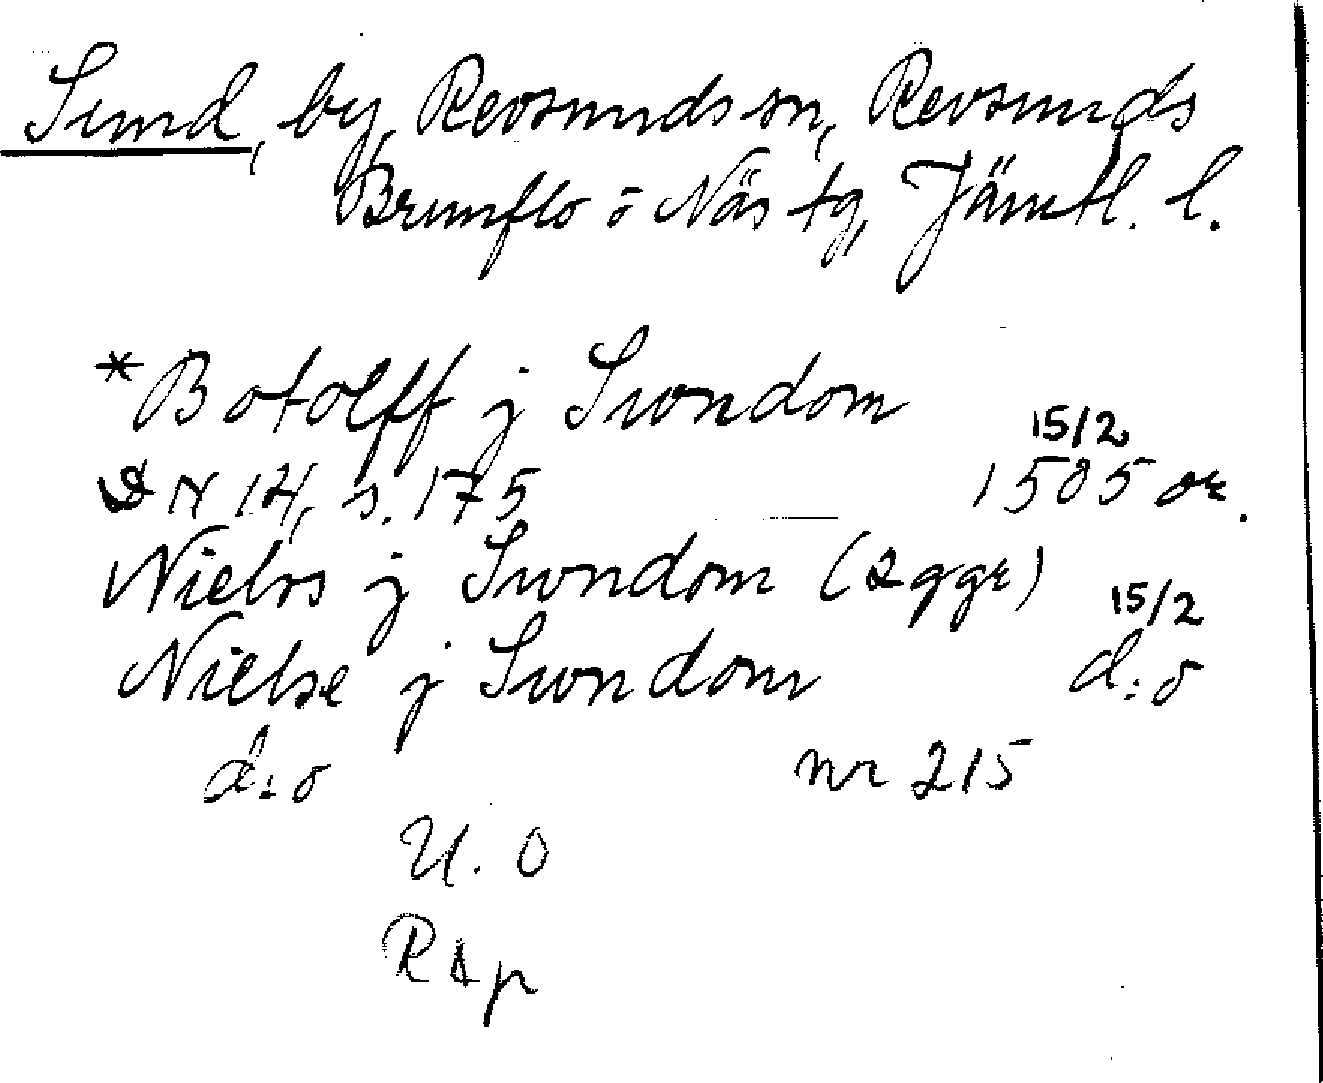 Sund, by, Revsunds sn, Revsunds
Brunflo o Näs tg, Jämtl. l.
*Botolff j Swndom
15/2
DN 14, s. 175 1505 or.
Nielss j Swndom (2 ggr)
15/2
Nielse j Swndom d:o
d:o nr 215
U. O
Rap